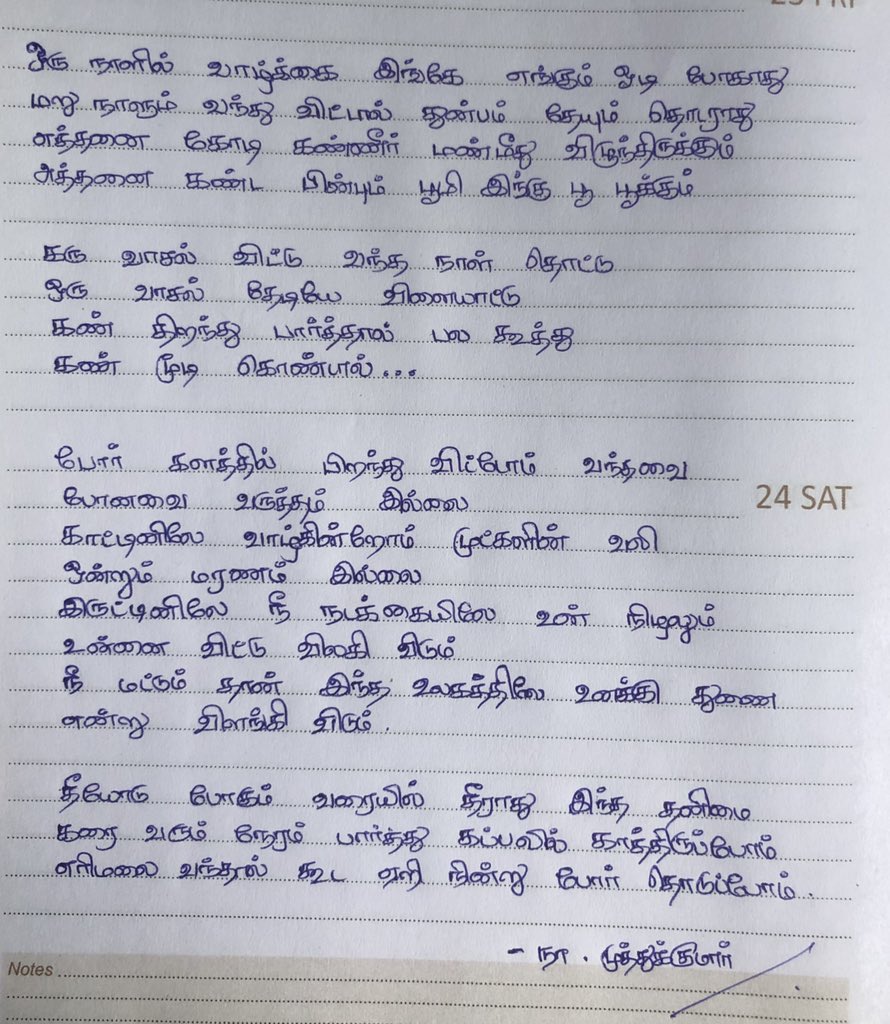 ஒரு நாளில் வாழ்க்கை இங்கே எங்கும் ஓடி போகாது
மறு நாளும் வந்து விட்டால் துன்பம் தேயும் தொடராது
எத்தனை கோடி கண்ணீர் மண்மீது விழுந்திருக்கும்
அத்தனை கண்ட பின்பும் பூமி இங்கு பூ பூக்கும்
கரு வாசல் விட்டு வந்த நாள் தொட்டு
ஒரு வாசல் தேடியே விளையாட்டு
கண் திறந்து பார்த்தால் பல கூத்து
கண் மூடி கொண்டால்...
போர் களத்தில் பிறந்து விட்டோம் வந்தவை
போனவை வருத்தம் இல்லை
24 SAT
காட்டினிலே வாழ்கின்றோம் முட்களின் வலி
ஒன்றும் மரணம் இல்லை
இருட்டினிலே நீ நடக்கையிலே உன் நிழலும்
உன்னை விட்டு விலகி விடும்
நீ மட்டும் தான் இந்த உலகத்திலே உனக்கு துணை
என்று விளங்கி விடும்.
தீயோடு போகும் வரையில் தீராது இந்த தனிமை
கரை வரும் நேரம் பார்த்து கப்பலில் காத்திருப்போம்
எரிமலை வந்தால் கூட ஏறி நின்று போர் தொடுப்போம்.
- நா. முத்துக்குமார்
Notes